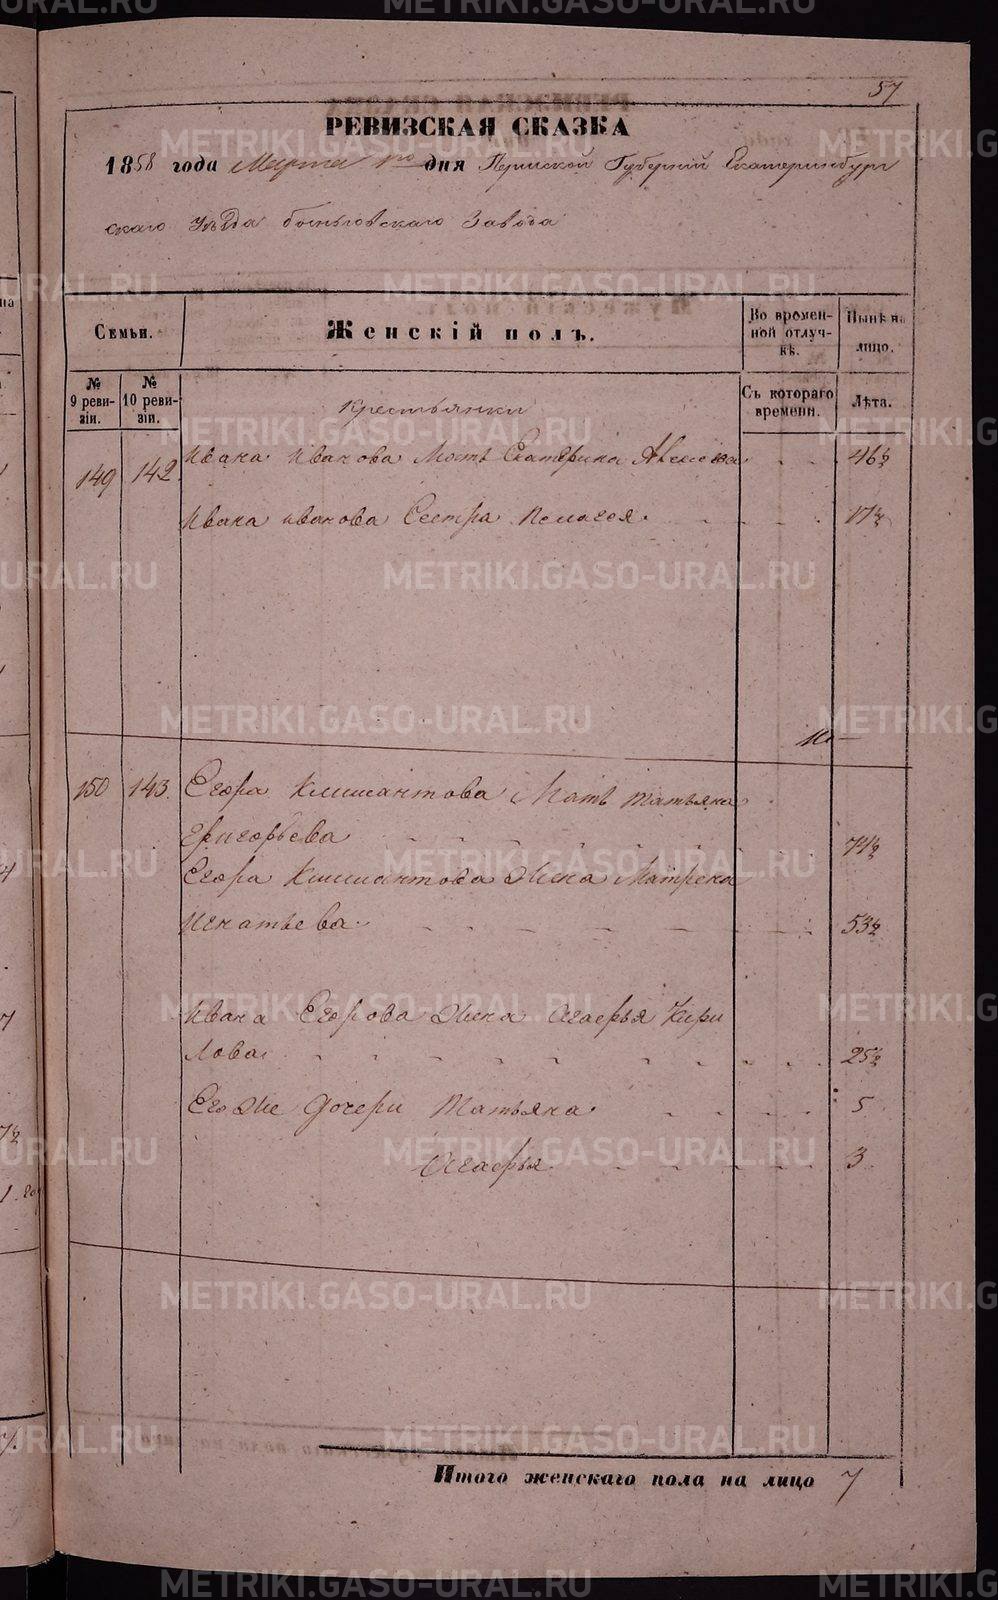 57
РЕВИЗСКАЯ СКАЗКА
1858 года Марта 1го дня Пермской Губерніи Екатеринбург
скаго Уѣзда Завода
Семьи.
Женскій полъ.
Во времен-
ной отлуч-
кѣ.
Нынѣ на
лицо.
№
9 реви-
зіи.
№
10 реви-
зіи.
Съ котораго
времени.
Лѣта.
Крестьянки
149 142 Ивана Иванова Мать Екатерина Алексеева 46½
Ивана Иванова Сестра Пелагея 17½
150 143. Егора Климантова Мать Татьяна
Григорьева 74½
Егора Климантова Жена Матрена
Игнатьева 53½
Ивана Егорова Жена Агафья Кири
лова 25½
Его Же Дочери Татьяна 5
Агафья 3
Итого женскаго пола на лицо 7
METRIKI.GASO-URAL.RU